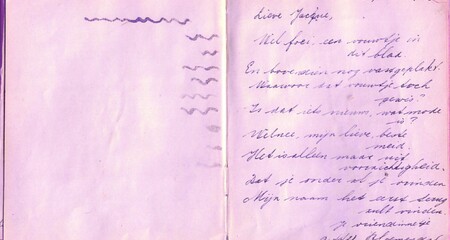 Lieve Jacque,
Wel foei, een vouwtje in
dit blad
En bovendien nog vastgeplakt.
Waarvoor dat vouwtje toch
gewis?
Is dat iets nieuws, wat mode
is?
Welnee, mijn lieve, beste
meid.
Het is alleen maar uit
voorzichtigheid.
Dat je onder al je vrinden
Mijn naam het eerst terug
zult vinden
je vriendinnetje